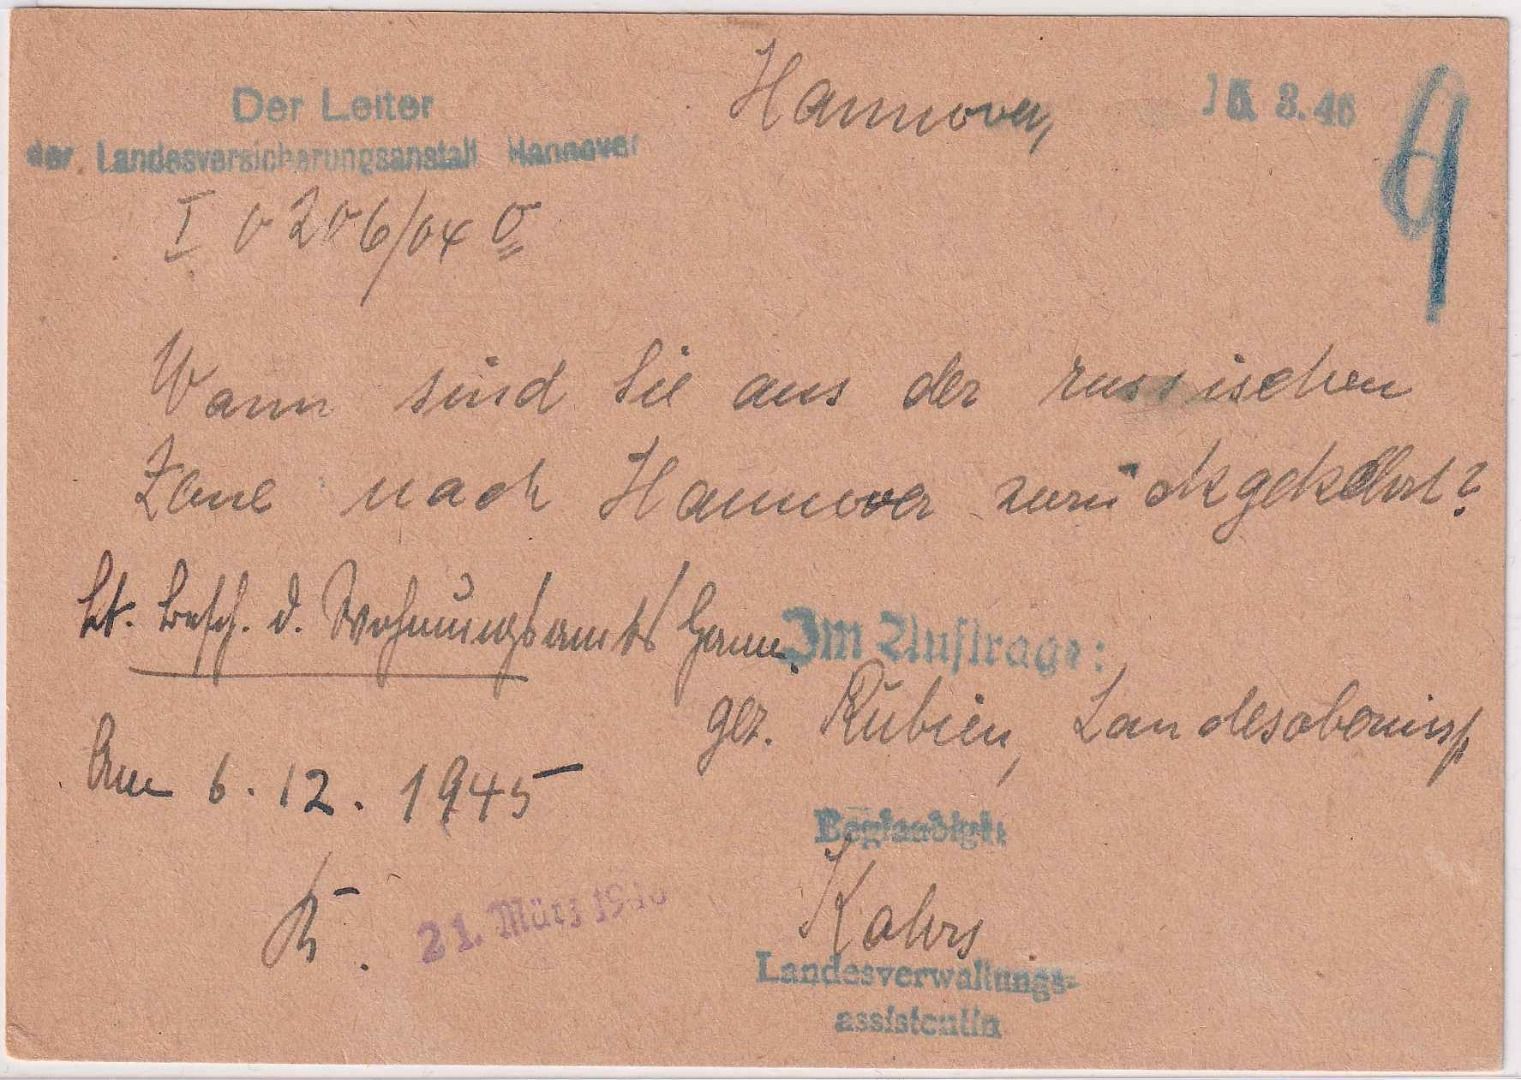 Der Leiter
der Landesversicherungsanstalt Hannover
Hannover, 15. 3. 46
I 0 206/04 0
9
Wann sind Sie aus der russischen
Zone nach Hannover zurückgekehrt?
Lt. Besch. d. Wohnungsamts Hann.
Im Auftrage:
gez. Rubien, Landesoberinsp
Am 6.12.1945
Beglaubigt:
21. März 1946
Kahrs
Landesverwaltungs-
assistentin